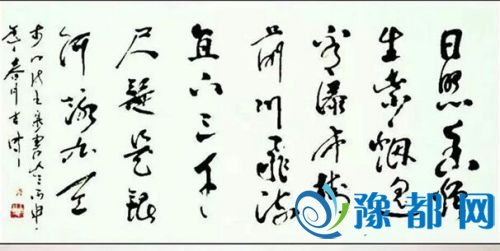 日照香爐
生紫烟遥
看瀑布挂
前川飛流
直下三千
尺疑是銀
河落九天
豫都网